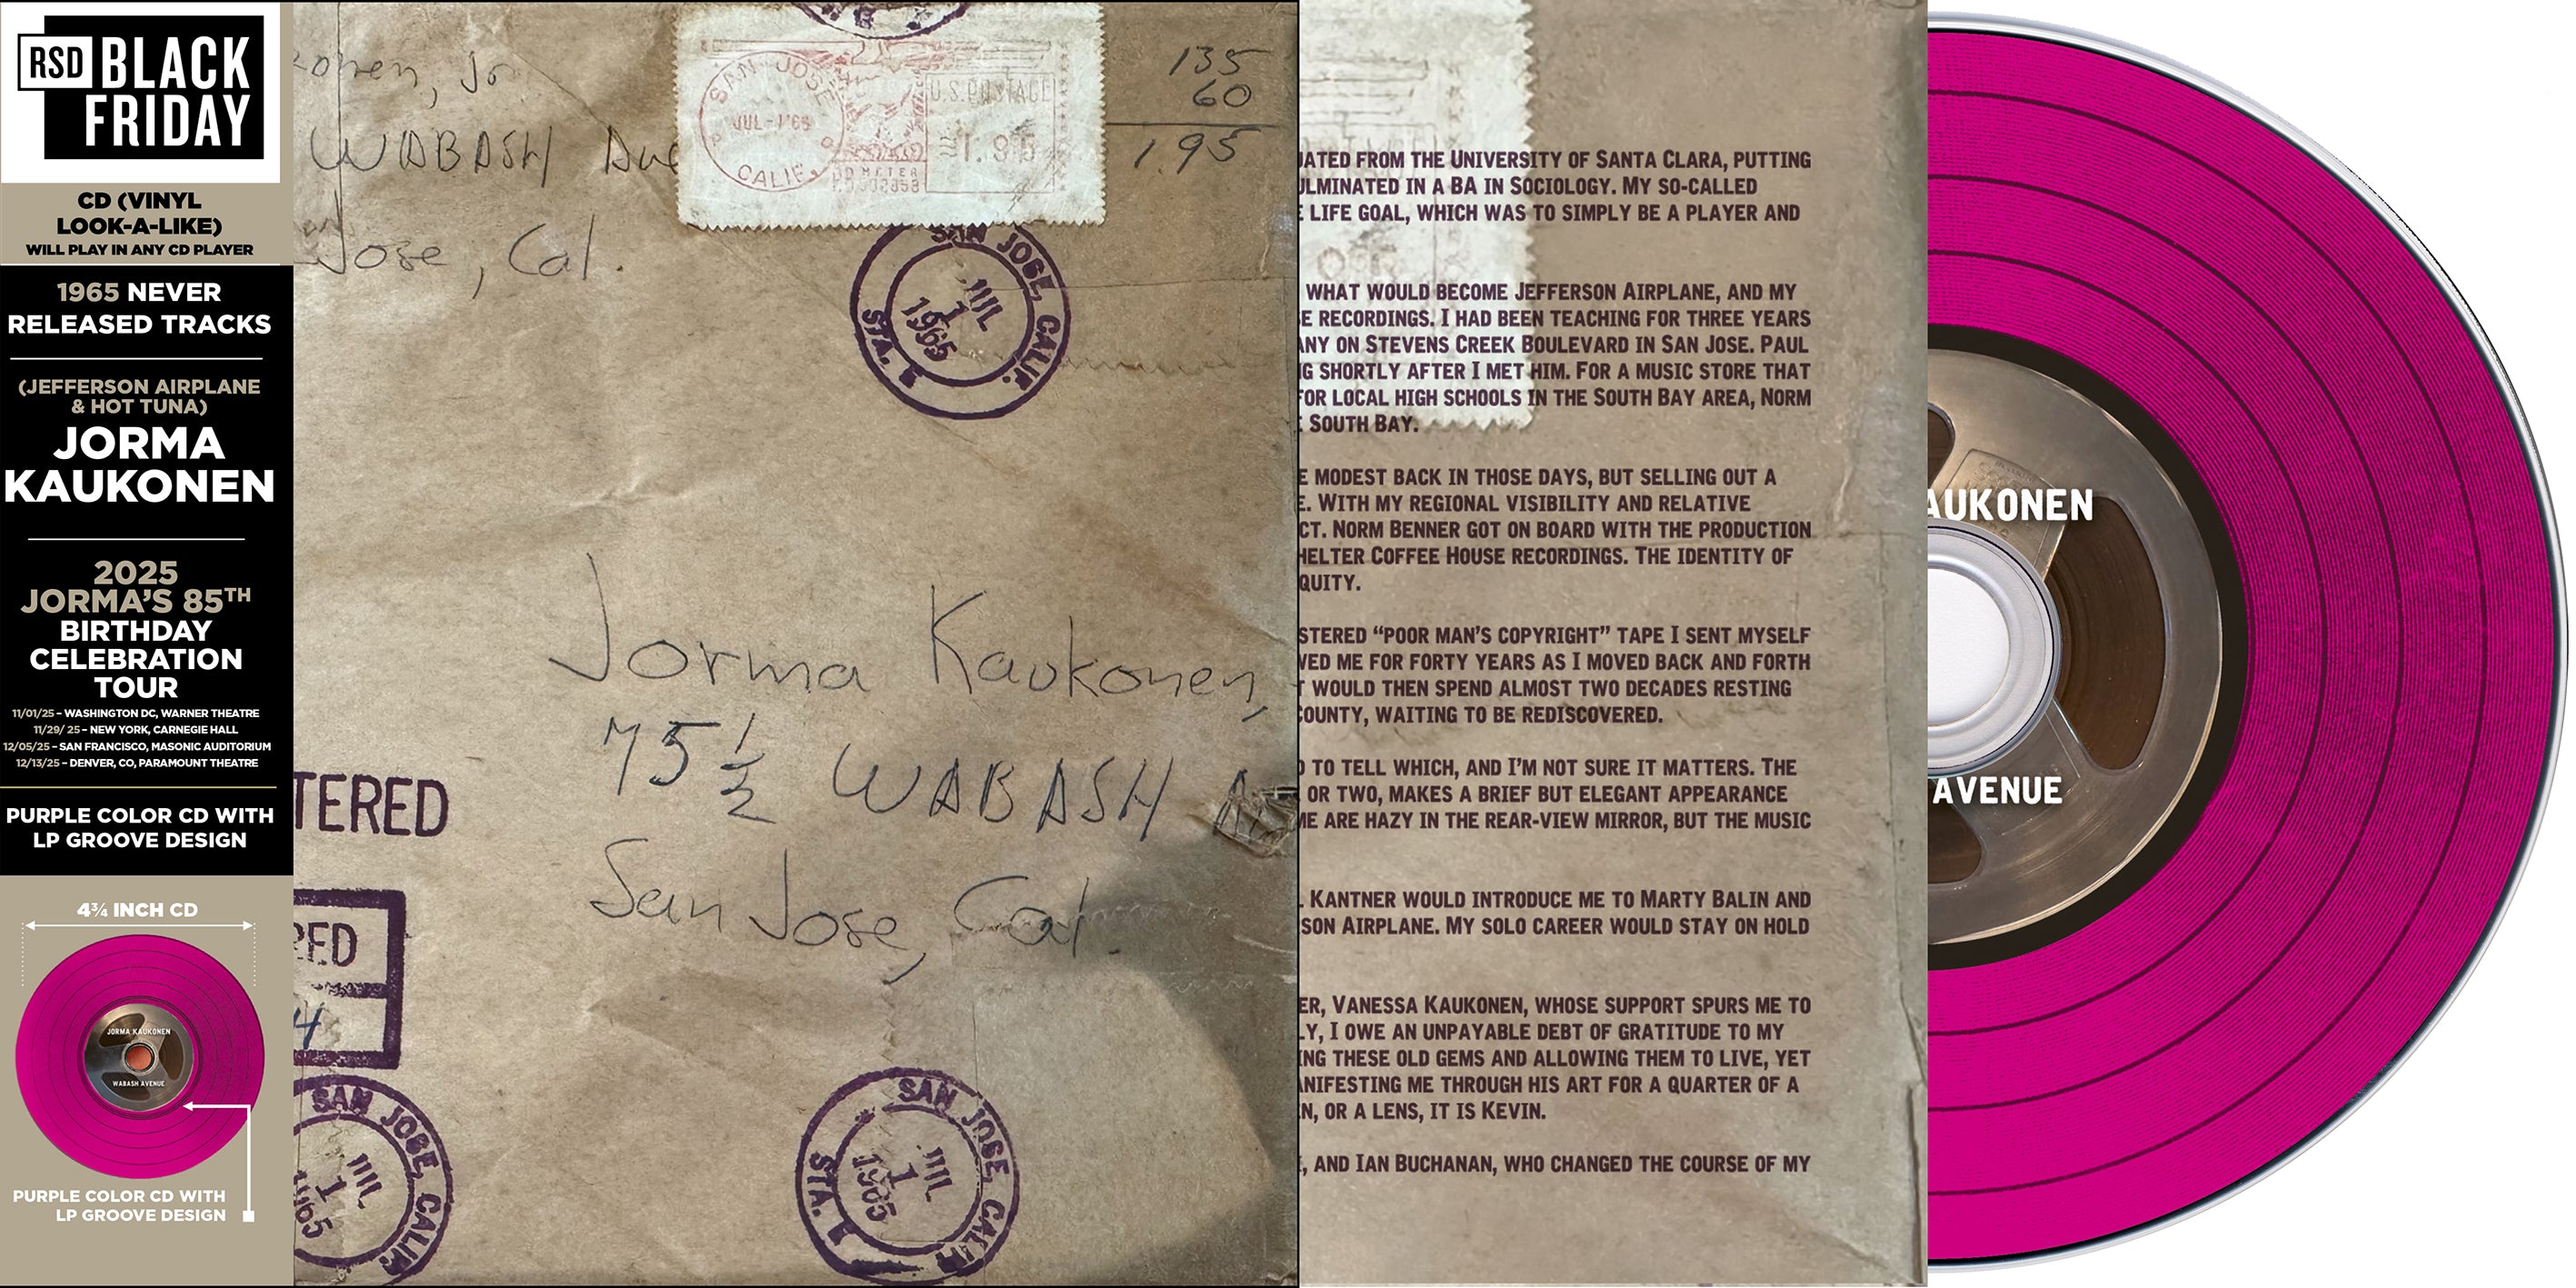 RSD BLACK
FRIDAY
CD (VINYL
LOOK-A-LIKE)
WILL PLAY IN ANY CD PLAYER
1965 NEVER
RELEASED TRACKS
(JEFFERSON AIRPLANE
& HOT TUNA)
JORMA
KAUKONEN
2025
JORMA'S 85TH
BIRTHDAY
CELEBRATION
TOUR
11/01/25 – WASHINGTON DC, WARNER THEATRE
11/29/ 25 – NEW YORK, CARNEGIE HALL
12/05/25 – SAN FRANCISCO, MASONIC AUDITORIUM
12/13/25 – DENVER, CO, PARAMOUNT THEATRE
PURPLE COLOR CD WITH
LP GROOVE DESIGN
4¾ INCH CD
JORMA KAUKONEN
WABASH AVENUE
PURPLE COLOR CD WITH
LP GROOVE DESIGN
konen, Jr
WABASH Ave
Jose, Cal.
SAN JOSE
JUL-1'65
CALIF.
U.S. POSTAGE
135
60
1.95
SAN JOSE, CALIF.
JUL
1
1965
STA.
Jorma Kaukonen,
75 1/2 WABASH
San Jose, Cal.
TERED
RED
4
SAN JOSE, CALIF.
JUL
1
1965
SAN JOSE, CALIF.
JUL
1
1965
STA.
UATED FROM THE UNIVERSITY OF SANTA CLARA, PUTTING
ULMINATED IN A BA IN SOCIOLOGY. MY SO-CALLED
E LIFE GOAL, WHICH WAS TO SIMPLY BE A PLAYER AND
WHAT WOULD BECOME JEFFERSON AIRPLANE, AND MY
E RECORDINGS. I HAD BEEN TEACHING FOR THREE YEARS
ANY ON STEVENS CREEK BOULEVARD IN SAN JOSE. PAUL
NG SHORTLY AFTER I MET HIM. FOR A MUSIC STORE THAT
FOR LOCAL HIGH SCHOOLS IN THE SOUTH BAY AREA, NORM
E SOUTH BAY.
E MODEST BACK IN THOSE DAYS, BUT SELLING OUT A
E. WITH MY REGIONAL VISIBILITY AND RELATIVE
CT. NORM BENNER GOT ON BOARD WITH THE PRODUCTION
HELTER COFFEE HOUSE RECORDINGS. THE IDENTITY OF
QUITY.
STERED “POOR MAN'S COPYRIGHT” TAPE I SENT MYSELF
WED ME FOR FORTY YEARS AS I MOVED BACK AND FORTH
T WOULD THEN SPEND ALMOST TWO DECADES RESTING
COUNTY, WAITING TO BE REDISCOVERED.
D TO TELL WHICH, AND I'M NOT SURE IT MATTERS. THE
OR TWO, MAKES A BRIEF BUT ELEGANT APPEARANCE
ME ARE HAZY IN THE REAR-VIEW MIRROR, BUT THE MUSIC
L KANTNER WOULD INTRODUCE ME TO MARTY BALIN AND
SON AIRPLANE. MY SOLO CAREER WOULD STAY ON HOLD
ER, VANESSA KAUKONEN, WHOSE SUPPORT SPURS ME TO
LY, I OWE AN UNPAYABLE DEBT OF GRATITUDE TO MY
ING THESE OLD GEMS AND ALLOWING THEM TO LIVE, YET
ANIFESTING ME THROUGH HIS ART FOR A QUARTER OF A
N, OR A LENS, IT IS KEVIN.
, AND IAN BUCHANAN, WHO CHANGED THE COURSE OF MY
AUKONEN
AVENUE